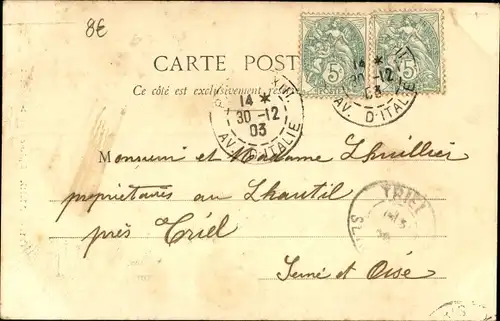 8€
CARTE POST
Ce côté est exclusivement
5c 5c
14 *
30 -12
03
AV. D'ITALIE
14 *
30 -12
03
AV. D'ITALIE
Monsieur et Madame Lhuillier
propriétaires au Lhautil
près Triel
Seine et Oise
TRIEL